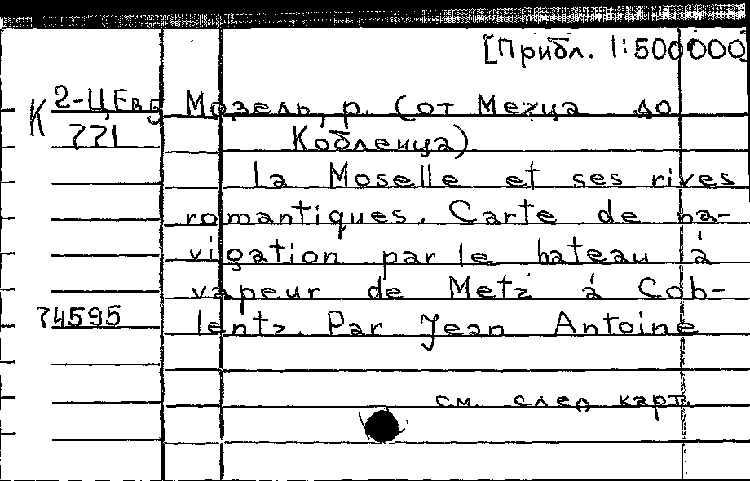 [Прибл. 1:500000
К 2-ЦЕв5 Мозель, р. (от Меца до
771 Кобленца)
La Moselle et ses rives
romantiques. Carte de na-
vigation par le bateau à
vapeur de Metz à Cob-
74595 lentz. Par Jean Antoine
см. след карт.